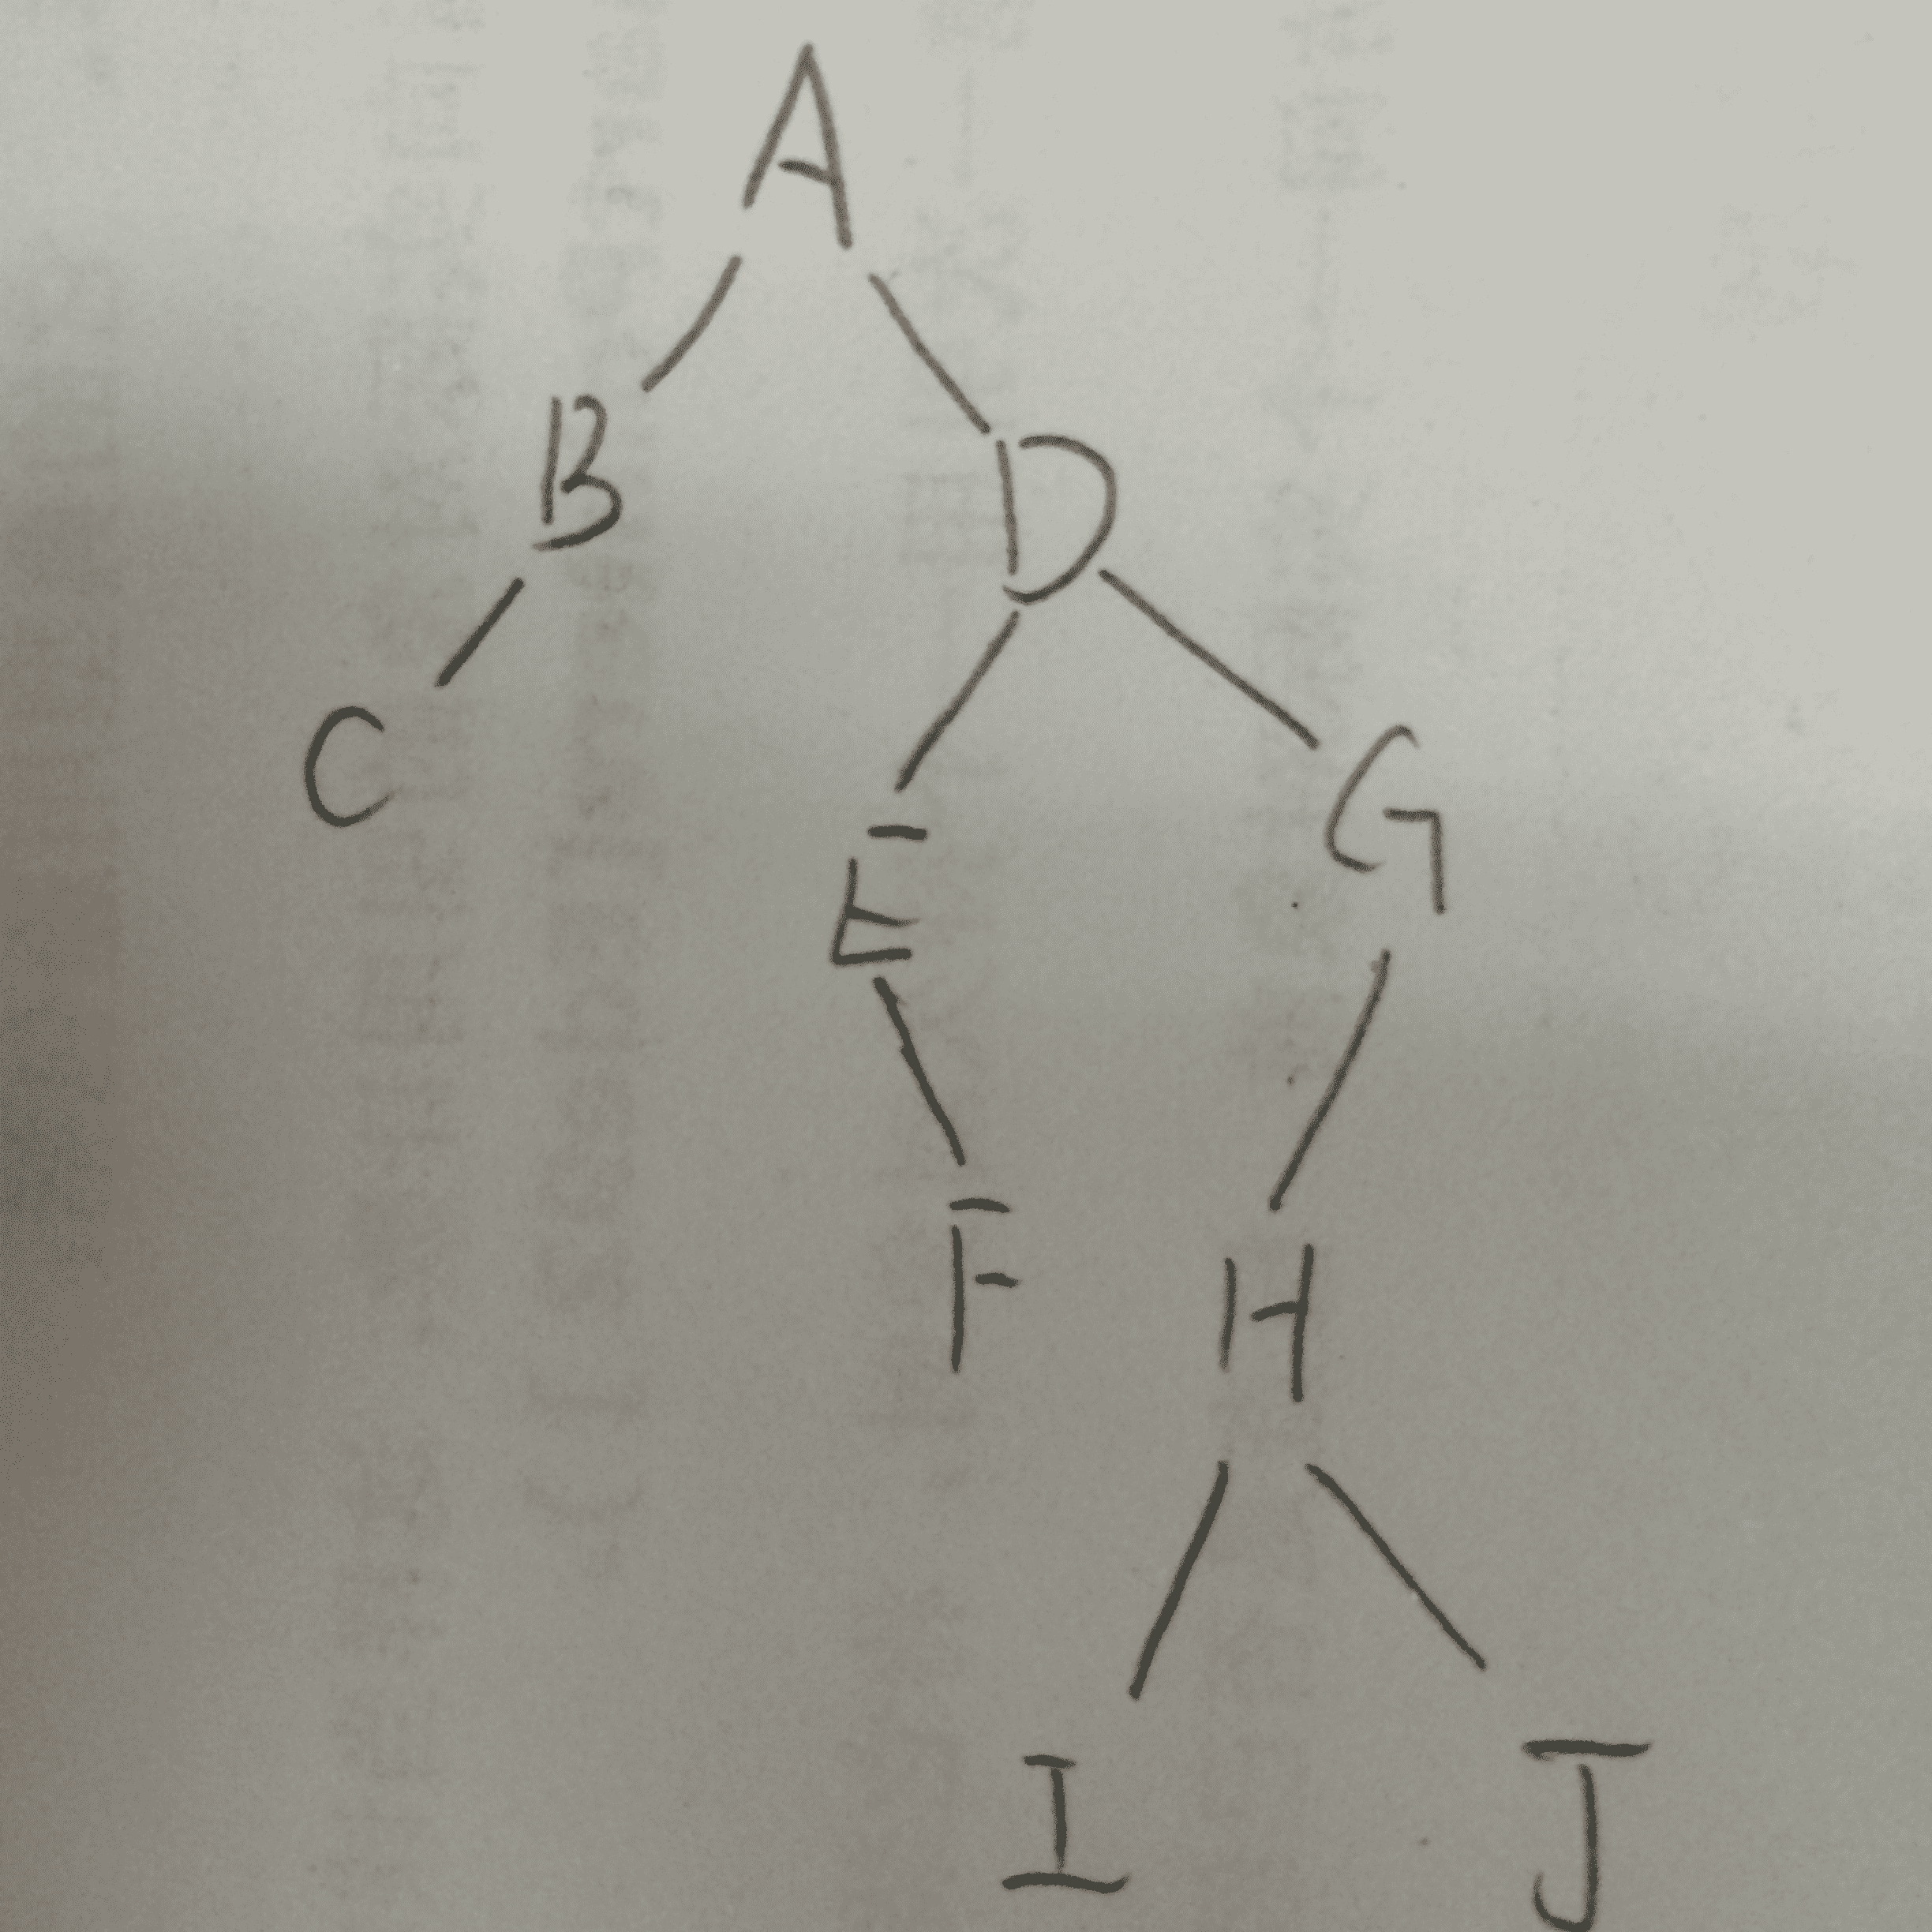 A
B D
C E G
F H
I J